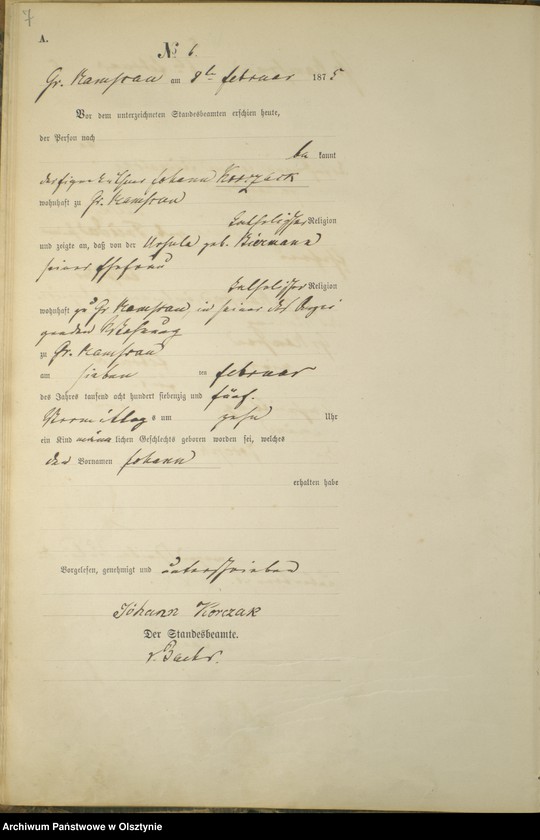 7
A.
No 6
Gr. Ramsau am 8ten februar 1875
Vor dem unterzeichneten Standesbeamten erschien heute,
der Person nach
be kannt
Johann Korczack
wohnhaft zu Gr. Ramsau
katholischer Religion
und zeigte an, daß von der Ursula geb. Biermann
seiner Ehefrau
katholischer Religion
wohnhaft zu Gr. Ramsau, in seiner des Anzei
genden Wohnung
zu Gr. Ramsau
am sieben ten februar
des Jahres tausend acht hundert siebenzig und fünf.
Vormittags um zehn Uhr
ein Kind männ lichen Geschlechts geboren worden sei, welches
den Vornamen Johann
erhalten habe
Vorgelesen, genehmigt und unterschrieben
Johann Korczak
Der Standesbeamte.
Archiwum Państwowe w Olsztynie